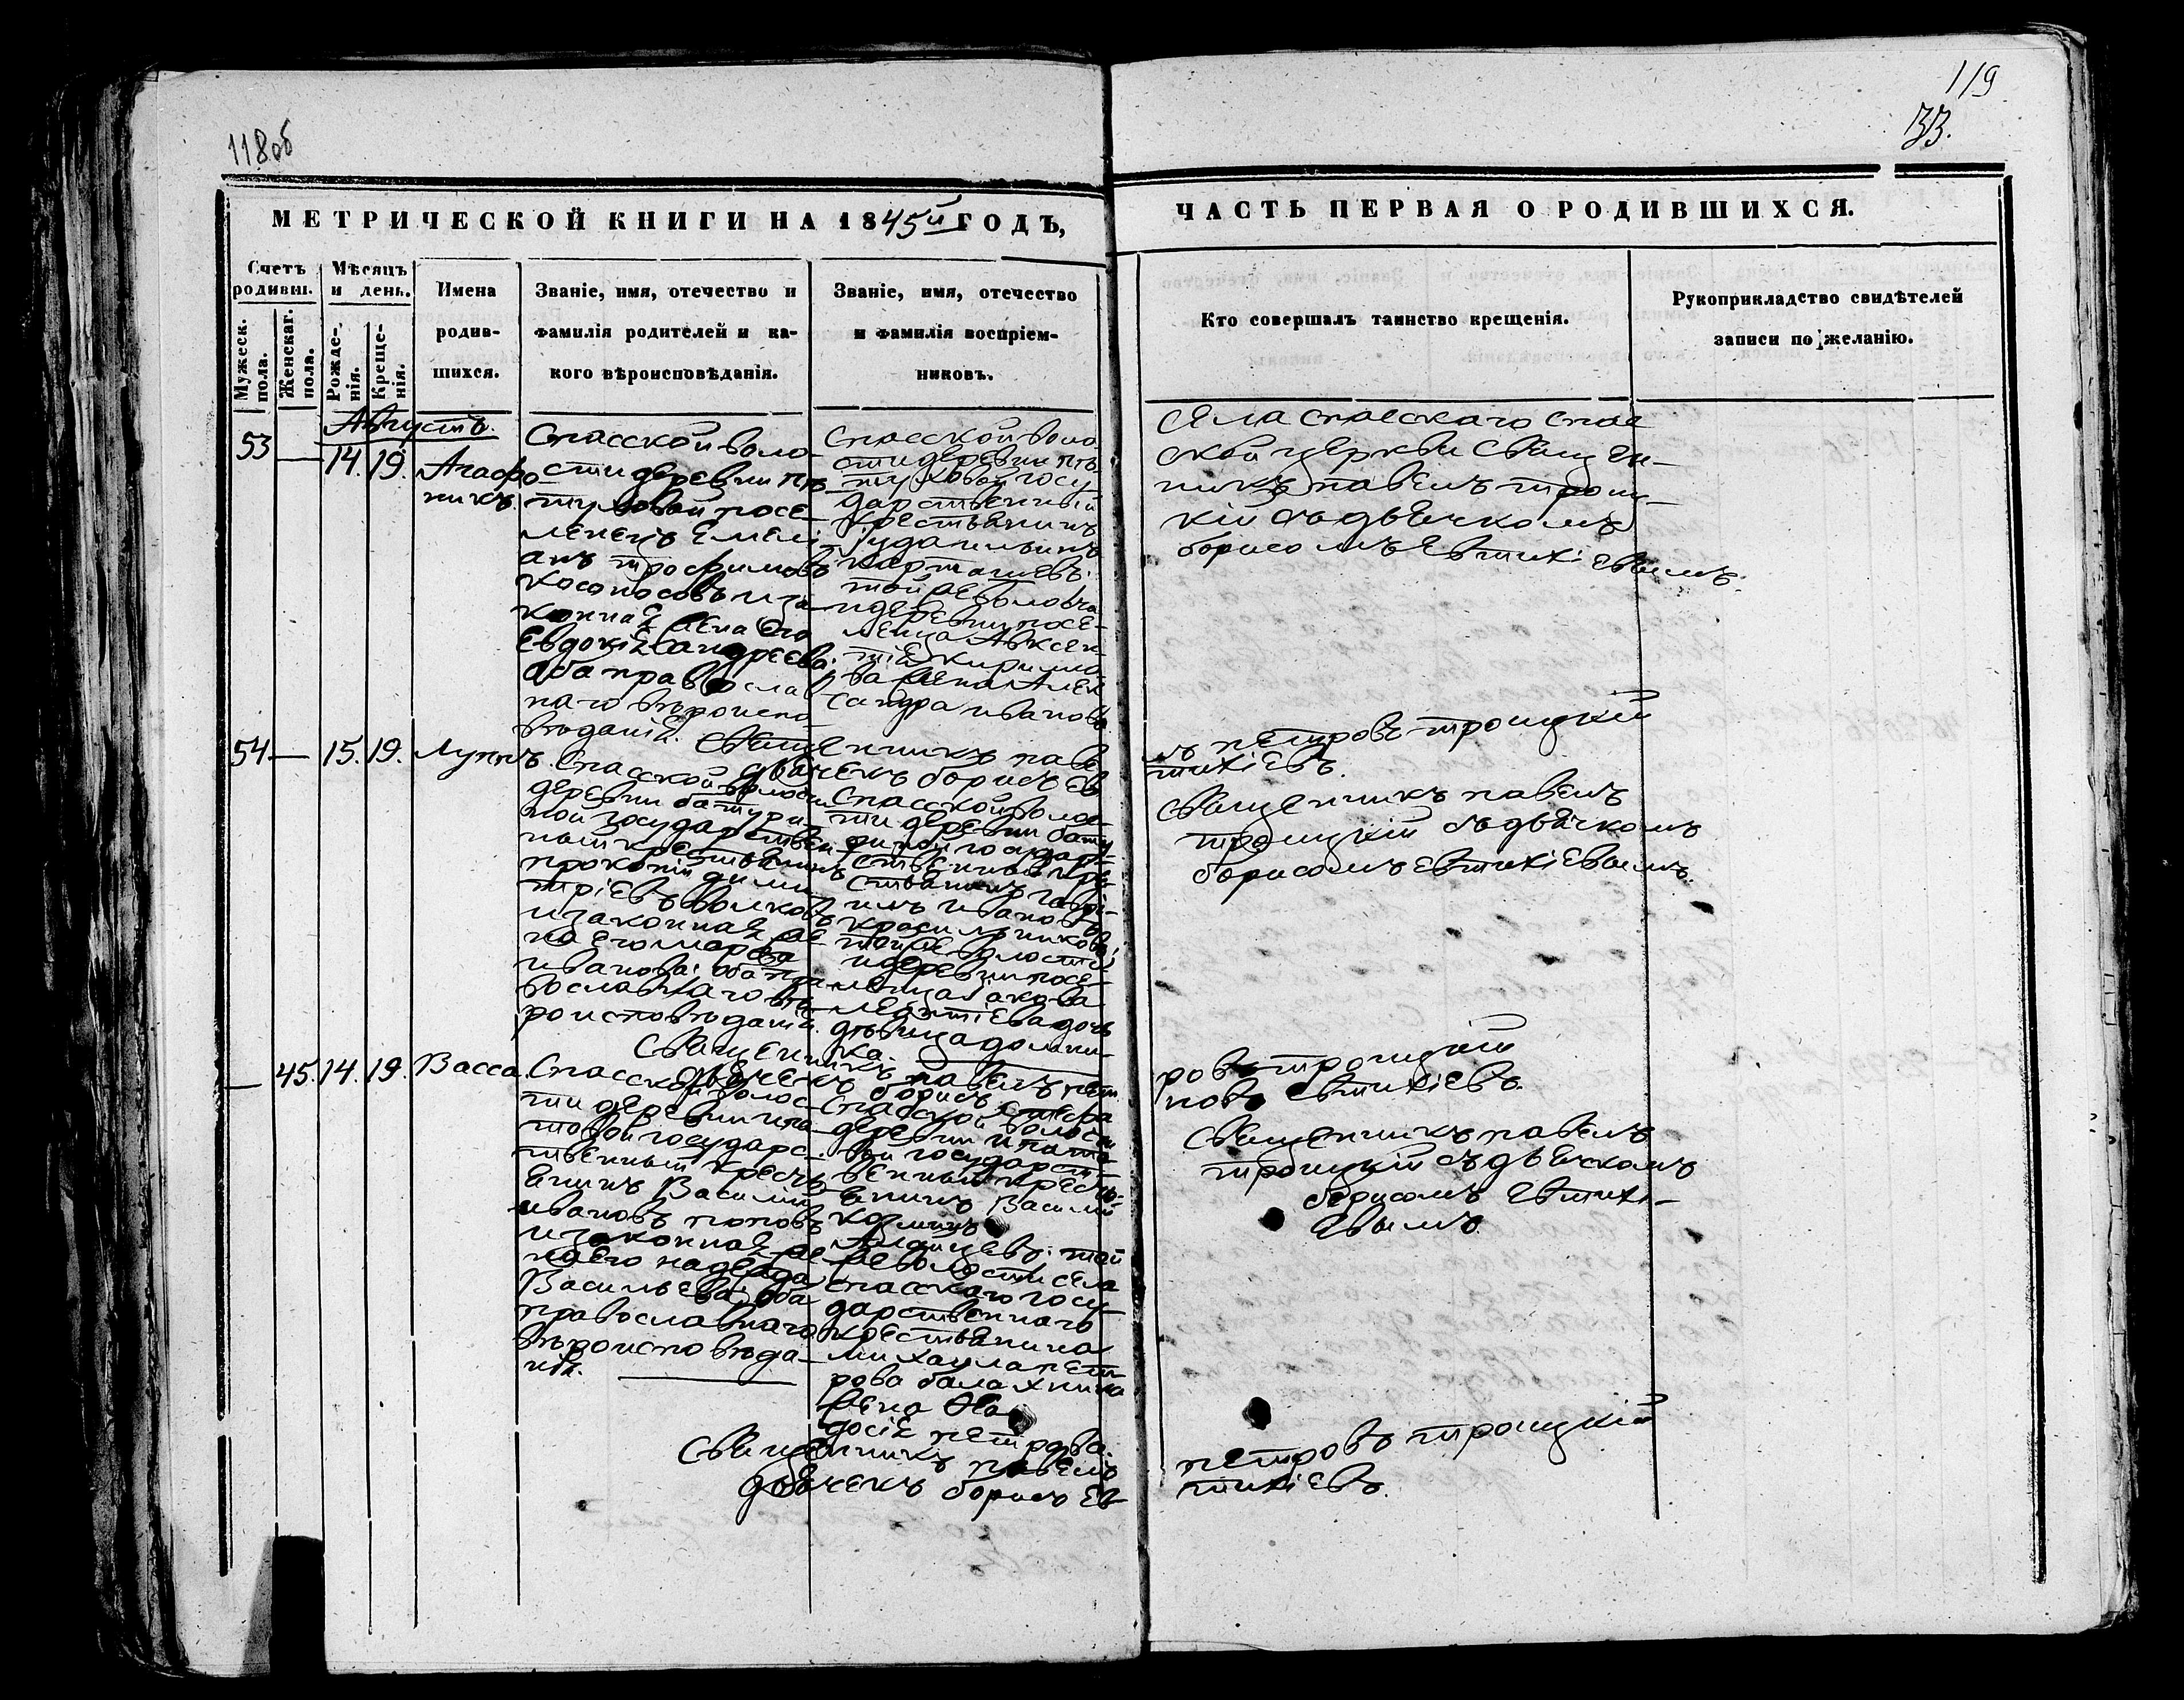 118 об
119
33.
МЕТРИЧЕСКОЙ КНИГИ НА 1845й ГОДЪ,
ЧАСТЬ ПЕРВАЯ О РОДИВШИХСЯ.
Счетъ родивш.
Мужеск. пола.
Женскаг. пола.
Мѣсяцъ и день.
Рожде-нія.
Креще-нія.
Имена
родив-
шихся.
Званіе, имя, отечество и
фамилія родителей и ка-
кого вѣроисповѣданія.
Званіе, имя, отечество
и фамилія воспріем-
никовъ.
Кто совершалъ таинство крещенія.
Рукоприкладство свидѣтелей
записи по желанію.
Августъ.
53 — 14. 19.
Агафо
никъ.
Спасской воло-
сти деревни Пѣ-
туховой посе-
ленецъ Емелі-
анъ Трофимовъ
Косоносовъ и за-
конная жена его
Евдокія Андреева:
оба православ-
наго вѣроиспо-
вѣданія.
Спасской воло
сти деревни Пѣ-
туховой госу
дарственный
крестьянинъ
Іуда Ильинъ
Карташевъ:
той же волости
и деревни посе-
ленца Авксен-
тія Кирило
ва жена Алек
сандра Иванова
Села Спасскаго Спас
ской церкви Священ-
никъ Павелъ Трои-
кій съ дьячкомъ
Борисомъ Евтихіевымъ.
Священникъ Павелъ Петровъ Троицкій
дьячекъ Борисъ Евтихіевъ.
54 — 15. 19. Луппъ.
Спасской волости
деревни Батури-
ной государствен-
ный крестьянинъ
Прокопій Дими-
тріевъ Волковъ
и законная же-
на его Марфа
Иванова: оба пра-
вославнаго вѣ-
роисповѣданія.
Спасской волос-
ти деревни Бату
риной государ-
ственный кре-
стьянинъ Гаврі-
илъ Ивановъ
Красильниковъ:
той же волости
и деревни посе-
ленца Іакова
Леонтіева дочь
дѣвица Домни-
ка.
Священникъ Павелъ
Троицкій съ дьячкомъ
Борисомъ Евтихіевымъ.
Священникъ Павелъ Петровъ Троицкій
дьячекъ Борисъ Евтихіевъ.
— 45. 14. 19. Васса.
Спасской волос-
ти деревни Ипа-
товой государс-
твенный кресть
янинъ Василій
Ивановъ Поповъ
и законная же-
на его Надежда
Васильева: оба
православнаго
вѣроисповѣда-
нія.
Спасской волости
деревни Ипато
вой государст-
венный кресть-
янинъ Василій
Козминъ
той
же волости села
Спасскаго госу
дарственнаго
крестьянина
Михаила Пет
рова Балахнина
жена Ѳео
досія Петрова.
Священникъ Павелъ
Троицкій съ дьячкомъ
Борисомъ Евтихі-
евымъ.
Священникъ Павелъ Петровъ Троицкій
дьячекъ Борисъ Евтихіевъ.